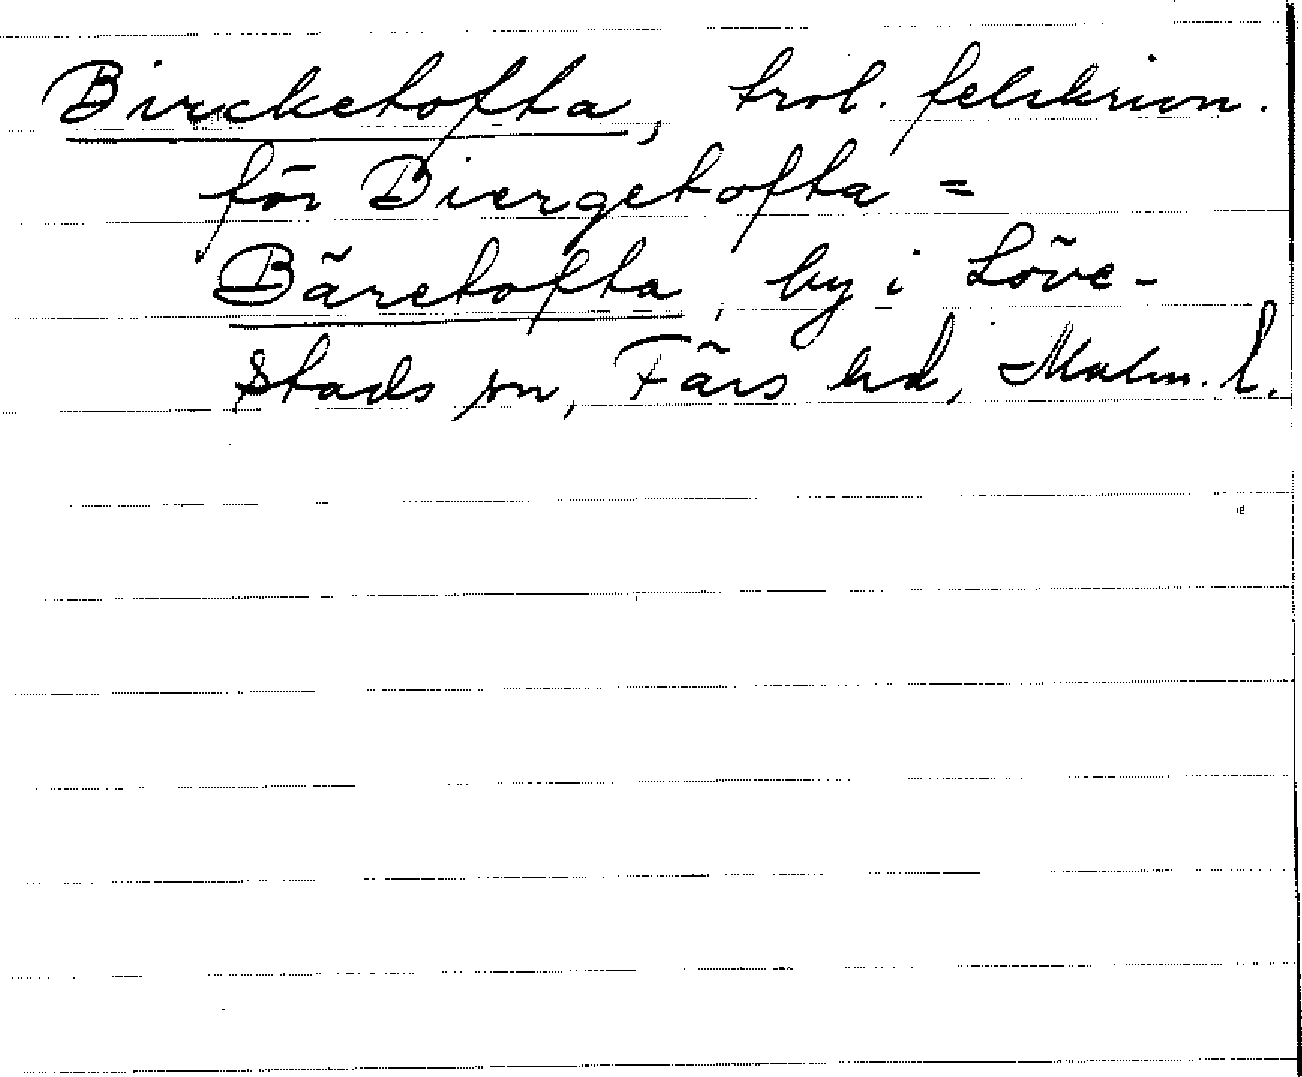 Bircketofta, trol. felskrivn.
för Biergetofta =
Bäretofta, by i Löve-
stads sn, Färs hd, Malm. l.